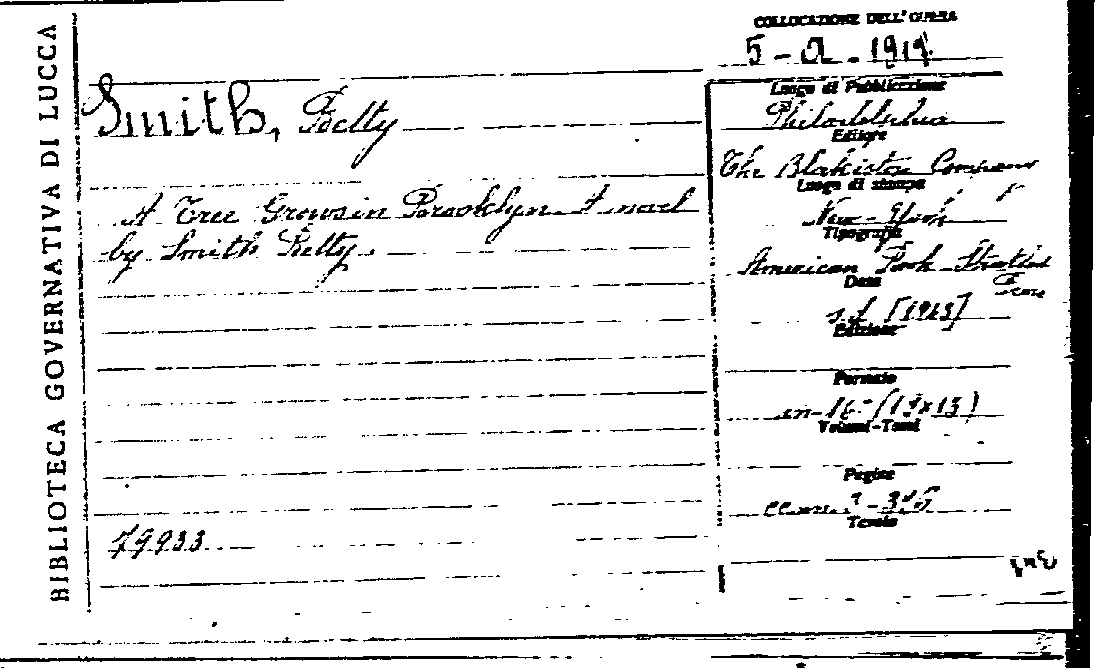 BIBLIOTECA GOVERNATIVA DI LUCCA
COLLOCAZIONE DELL'OPERA
5-a-1919
Smith, Betty
A Tree Grows in Brooklyn. A novel
by Smith Betty.
79933
Luogo di Pubblicazione
Philadelphia
Editore
The Blakiston Company
Luogo di stampa
New-York
Tipografia
American Book-Stratford
Press
Data
s.d. [1943]
Edizione
Formato
in-16° (19x13)
Volumi-Tomi
Pagine
Tavole